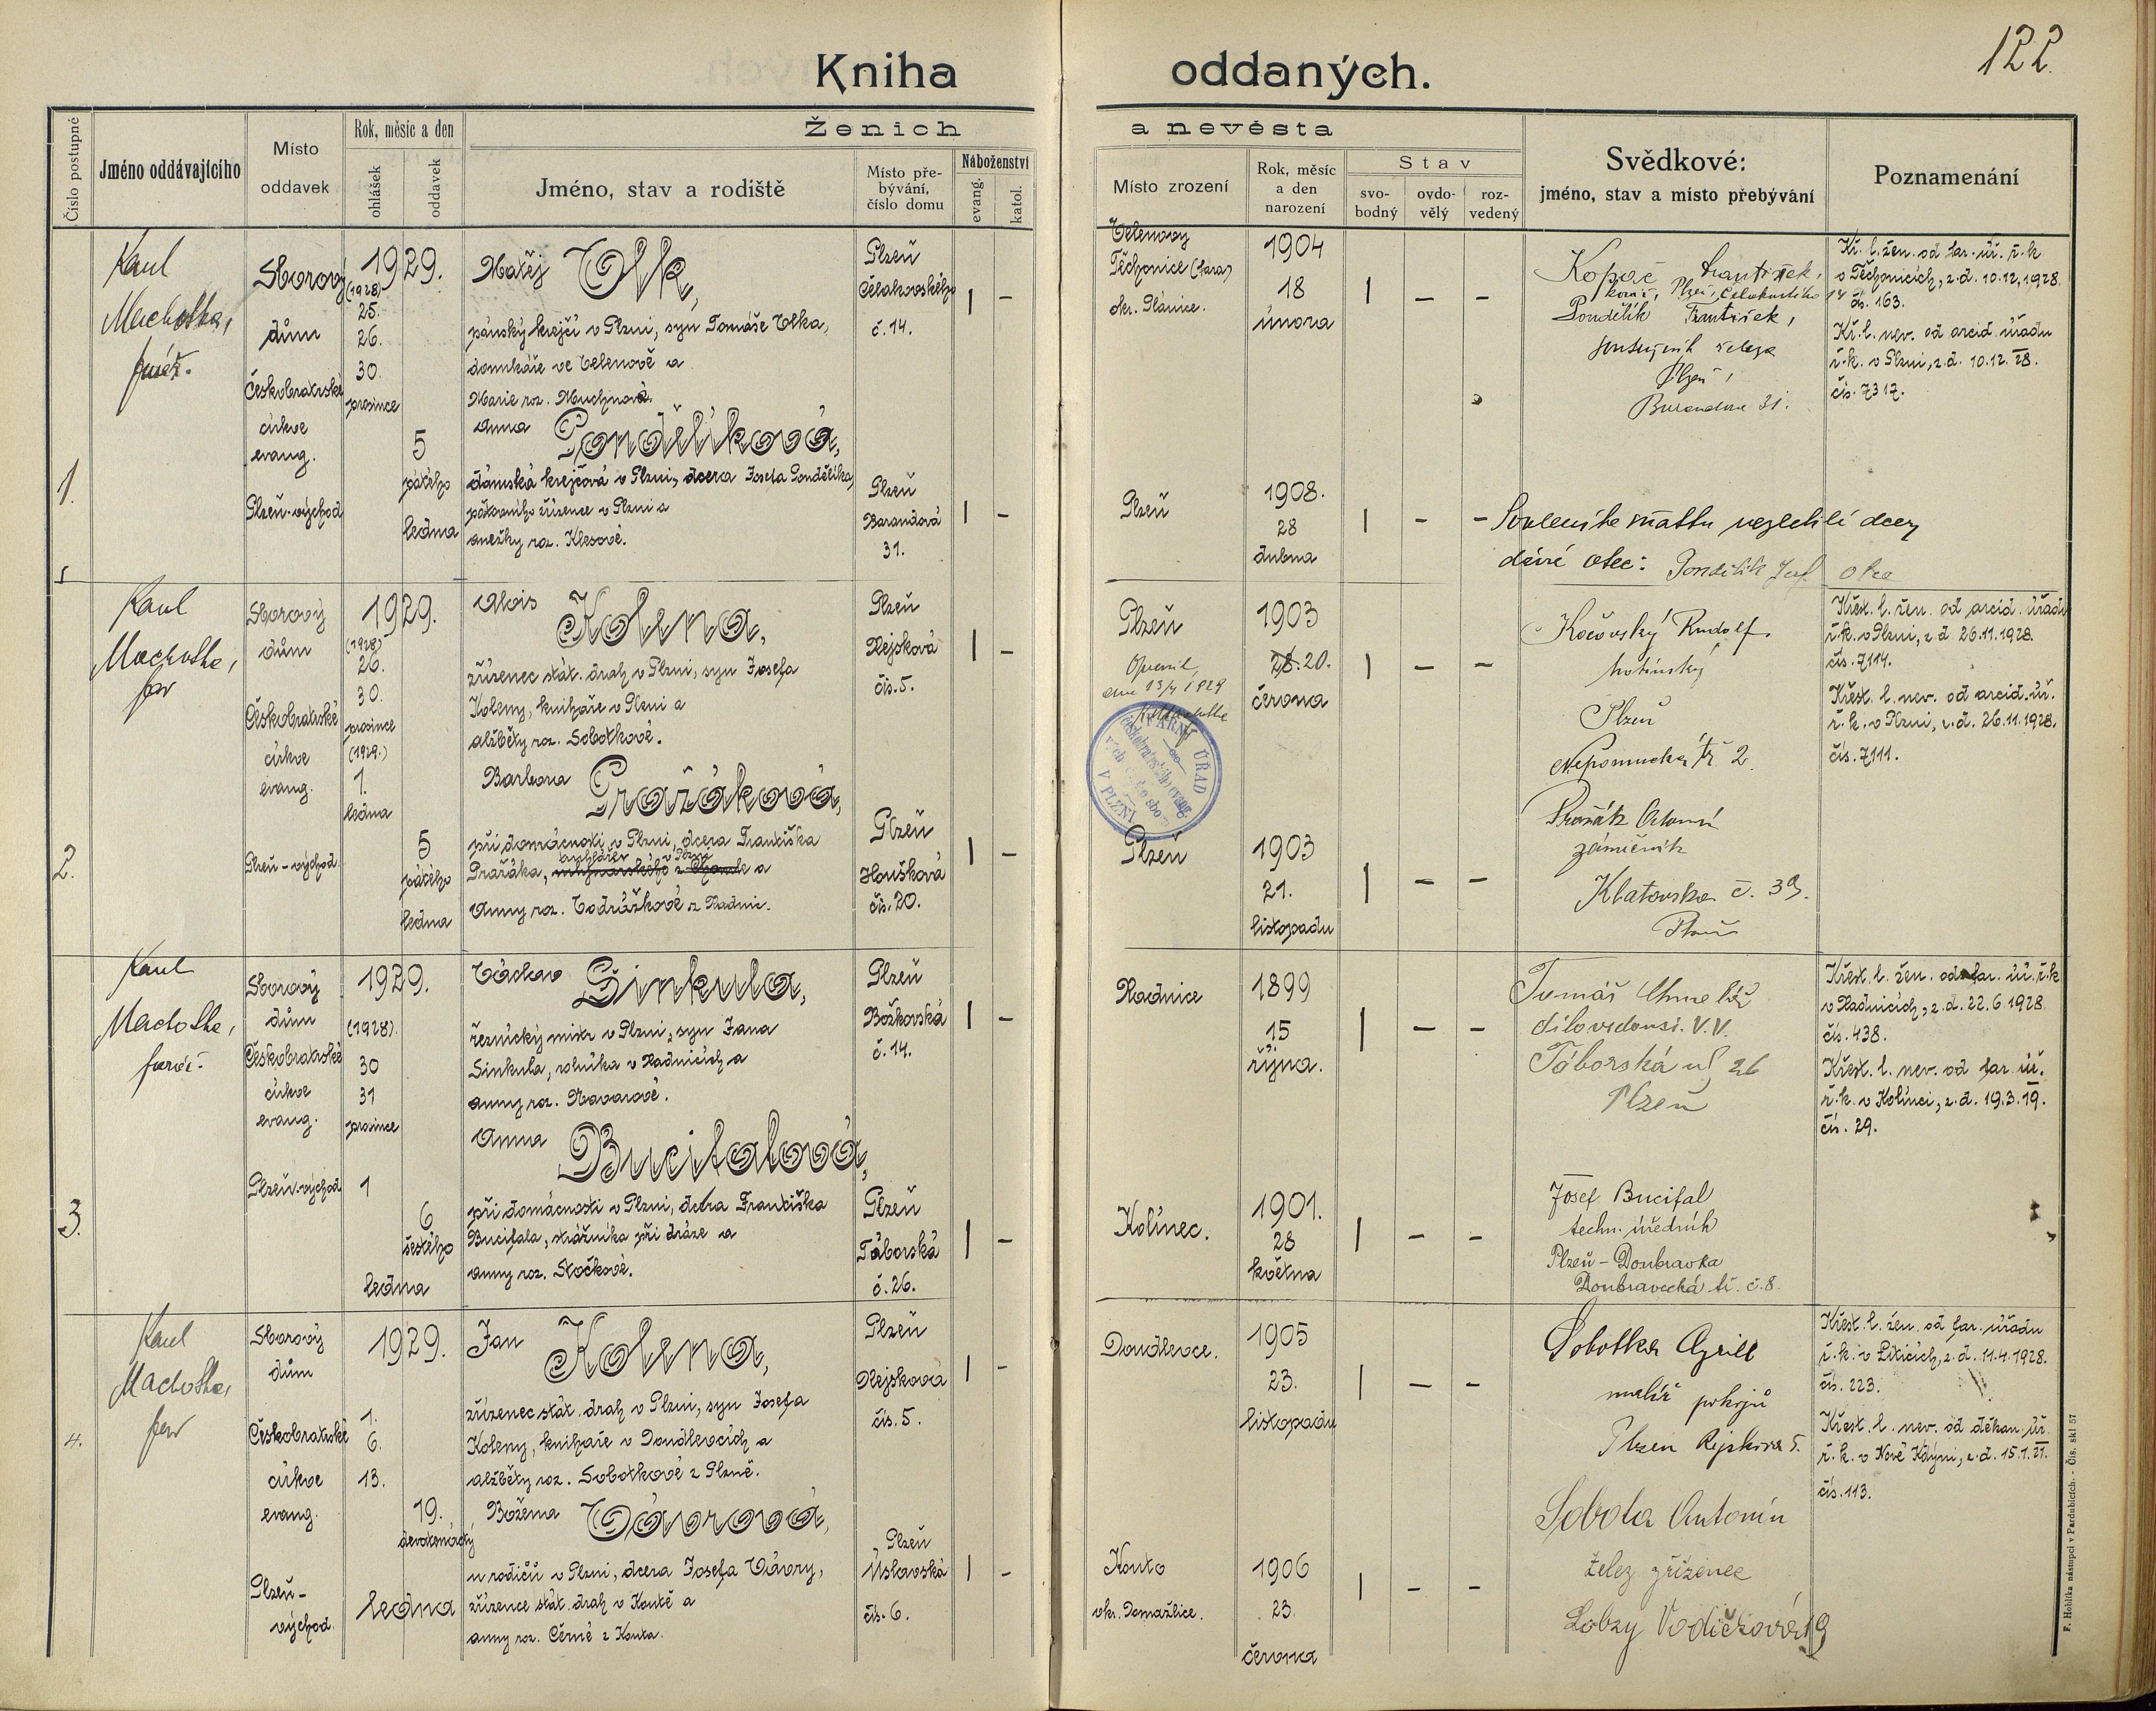 122.
Kniha oddaných.
Číslo postupné
Jméno oddávajícího
Místo oddavek
Rok, měsíc a den
ohlášek
oddavek
Ženich a nevěsta
Jméno, stav a rodiště
Místo pře-
bývání,
číslo domu
Náboženství
evang.
katol.
Místo zrození
Rok, měsíc
a den
narození
Stav
svo-
bodný
ovdo-
vělý
roz-
vedený
Svědkové:
jméno, stav a místo přebývání
Poznamenání
1.
Karel
Machotka,
farář.
Sborový
dům
Českobratrské
církve
evang.
Plzeň-východ
1929.
(1928)
25.
26.
30.
prosince
5
pátého
ledna
Matěj Vlk,
pánský krejčí v Plzni, syn Tomáše Vlka,
domkáře ve Velenově a
Marie roz. Muchnové.
Anna Pondělíková,
dámská krejčová v Plzni, dcera Josefa Pondělíka,
v Plzni a
Anežky roz. Klesové.
Plzeň
Čelakovského
č. 14.
Plzeň
Barandová
31.
I –
I –
Velenovy
Těchonice (fara)
okr. Plánice.
1904
18
února
I – –
Plzeň
1908.
28
dubna
I – –
Kopač František,
Plzeň, Čelakovského 14
Pondělík František,
Plzeň,
31.
dcery
otec: Pondělík Josef otec
Kř. l. žen. od far. úř. ř. k.
v Těchonicích, z d. 10.12.1928.
čís. 163.
Kř. l. nev. od arcid. úřadu
ř. k. v Plzni, z d. 10.12.28.
čís. 7317.
2.
Karel
Machotka,
far
Sborový
dům
Českobratrské
církve
evang.
Plzeň-východ.
1929.
(1928)
26.
30.
prosince
(1929.)
1.
ledna
5
pátého
ledna
Alois Kolena,
zřízenec stát. drah v Plzni, syn Josefa
Koleny, knihaře v Plzni a
Alžběty roz. Sobotkové.
Barbora Pražáková,
při domácnosti v Plzni, dcera Františka
Pražáka, a
Anny roz. Vodrážkové z Radnic.
Plzeň
Rejsková
čís. 5.
Plzeň
Houšková
čís. 20.
I –
I –
Plzeň
Opravil,
dne 13/4 1929
FARNÍ ÚŘAD
českobratrského evang.
V PLZNI
1903
28. 20.
června
I – –
Plzeň
1903
21.
listopadu
I – –
Kočovský Rudolf
hostinský
Plzeň
Nepomucká tř. 2.
Pražák Antonín
zámečník
Klatovská č. 39.
Plzeň
Křest. l. žen. od arcid. úřadu
ř. k. v Plzni, z d. 26.11.1928.
čís. 7114.
Křest. l. nev. od arcid. úř.
ř. k. v Plzni, z d. 26.11.1928.
čís. 7111.
3.
Karel
Machotka,
farář.
Sborový
dům
Českobratrské
církve
evang.
Plzeň-východ
1929.
(1928).
30
31
prosince
1
6
šestého
ledna
Václav Šinkula,
řeznický mistr v Plzni, syn Jana
Šinkula, rolníka v Radnicích a
Anny roz. Navarové.
Anna Bucifalová,
při domácnosti v Plzni, dcera Františka
Bucifala, strážníka při dráze a
Anny roz. Stočkové.
Plzeň
Božkovská
č. 14.
Plzeň
Táborská
č. 26.
I –
I –
Radnice
1899
15
října.
I – –
Kolinec.
1901.
28
května
I – –
Tomáš Chmelíř
dílovedoucí. V.V.
Táborská ul 26
Plzeň
Josef Bucifal
techn. úředník
Plzeň-Doubravka
Doubravecká tř. č. 8.
Křest. l. žen. od far. úř. ř. k.
v Radnicích, z d. 22.6.1928.
čís. 438.
Křest. l. nev. od far. úř.
ř. k. v Kolinci, z d. 19.3.19.
čís. 29.
4.
Karel
Machotka,
far
Sborový
dům
Českobratrské
církve
evang.
Plzeň-
východ.
1929.
1.
6.
13.
19.
devatenáctý
ledna
Jan Kolena,
zřízenec stát. drah v Plzni, syn Josefa
Koleny, knihaře v Doudlevcích a
Alžběty roz. Sobotkové z Plzně.
Božena Vávrová,
u rodičů v Plzni, dcera Josefa Vávry,
zřízence stát. drah v Koutě a
Anny roz. Černé z Kouta.
Plzeň
Rejsková
čís. 5.
Plzeň
Úslavská
čís. 6.
I –
I –
Doudlevce.
1905
23.
listopadu
I – –
Kouto
okr. Domažlice.
1906
23.
června
I – –
Sobotka Cyrill
malíř pokojů
Plzeň Rejskova 5.
Sobola Antonín
želez zřízenec
Lobzy Vodičková 19
Křest. l. žen. od far. úřadu
ř. k. v Liticích, z d. 11.4.1928.
čís. 223.
Křest. l. nev. od děkan. úř.
ř. k. v Nové Kdýni, z d. 15.1.21.
čís. 113.
F. Hoblík nástupci v Pardubicích. - Čís. skl 57